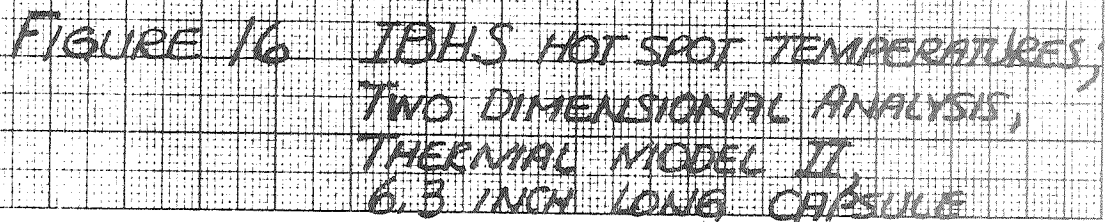 FIGURE 16 IBHS HOT SPOT TEMPERATURES,
TWO DIMENSIONAL ANALYSIS,
THERMAL MODEL II,
6.3 INCH LONG CAPSULE